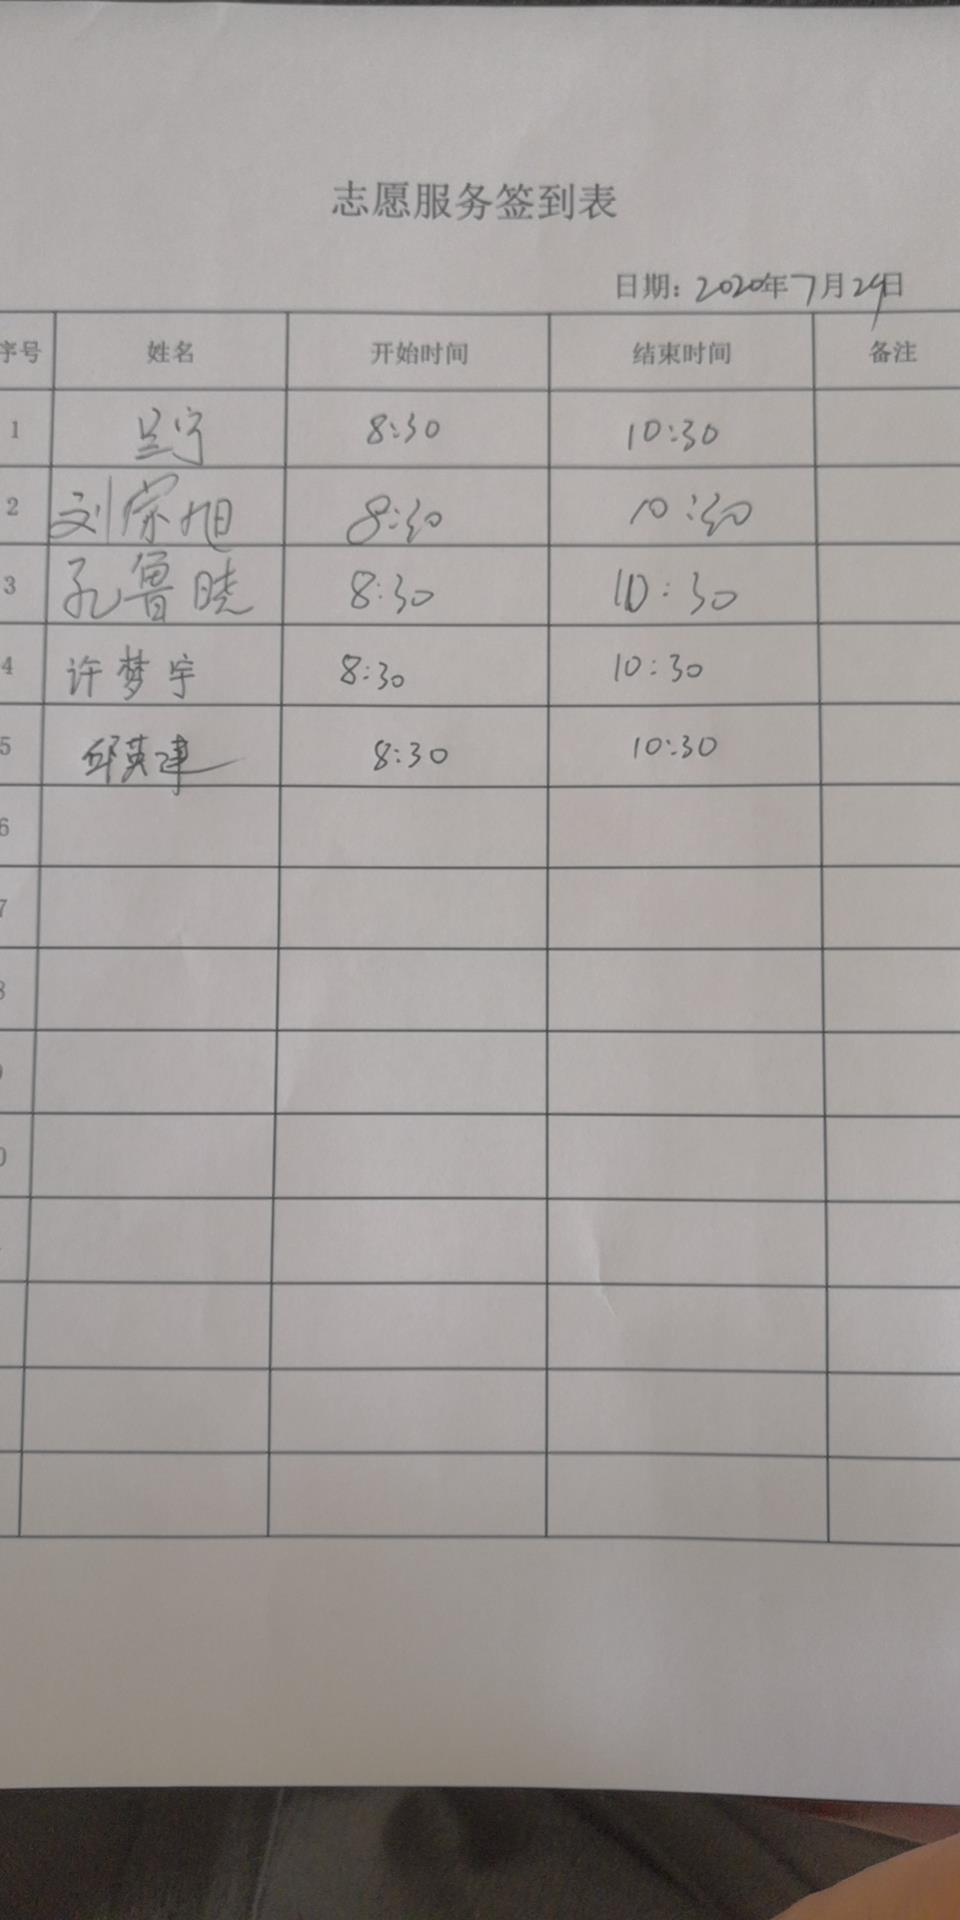 志愿服务签到表
日期：2020年7月29日
序号 姓名 开始时间 结束时间 备注
1 8:30 10:30
2 刘家旭 8:30 10:30
3 孔鲁晓 8:30 10:30
4 许梦宇 8:30 10:30
5 邱英建 8:30 10:30
6
7
8
9
0